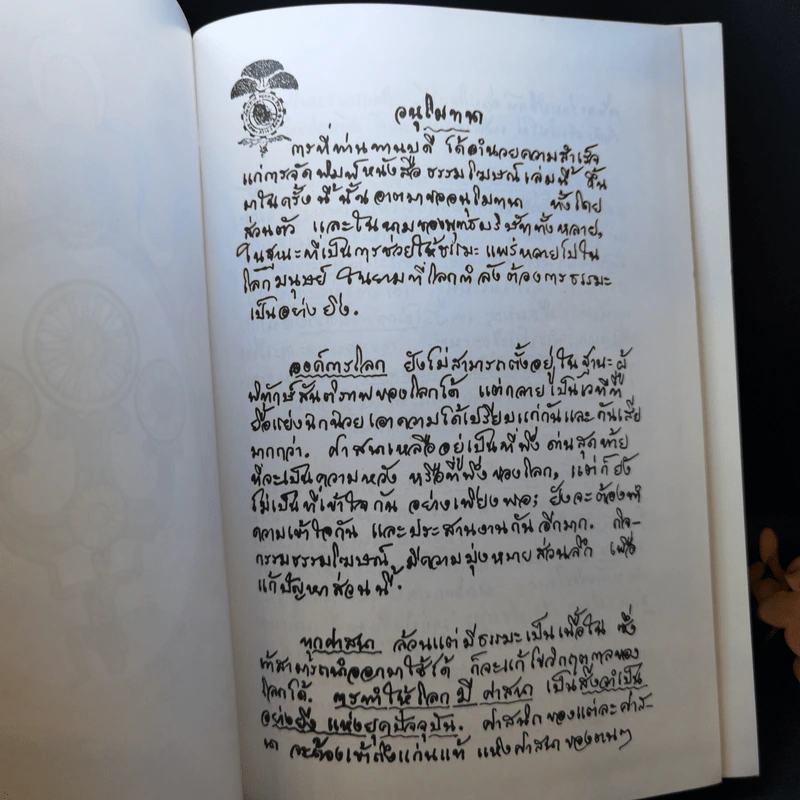 อนุโมทนา
การที่ท่านทานบดี ได้อำนวยความสำเร็จ
แก่การจัดพิมพ์หนังสือ ธรรมโฆษณ์ เล่มนี้ ขึ้น
มาในครั้งนี้ นั้น อาตมาขออนุโมทนา ทั้งโดย
ส่วนตัว และในนามของพุทธบริษัททั้งหลาย,
ในฐานะที่เป็นการช่วยให้ธรรมะ แพร่หลายไปใน
โลกมนุษย์ ในยามที่โลกกำลังต้องการธรรมะ
เป็นอย่างยิ่ง.
องค์การโลก ยังไม่สามารถตั้งอยู่ในฐานะผู้
พิทักษ์สันติภาพของโลกได้ แต่กลายเป็นเวทีที่
ยื้อแย่ง เอาความได้เปรียบแก่กันและกันเสีย
มากกว่า. ศาสนาเหลืออยู่เป็นที่พึ่ง ด่านสุดท้าย
ที่จะเป็นความหวัง หรือที่พึ่งของโลก, แต่ก็ยัง
ไม่เป็นที่เข้าใจกัน อย่างเพียงพอ; ยังจะต้องทำ
ความเข้าใจกัน และประสานงานกันอีกมาก. กิจ-
กรรมธรรมโฆษณ์ มีความมุ่งหมายส่วนลึก เพื่อ
แก้ปัญหาส่วนนี้.
ทุกศาสนา ล้วนแต่มีธรรมะเป็นเนื้อใน ซึ่ง
ถ้าสามารถนำออกมาใช้ได้ ก็จะแก้ไขวิกฤตกาลของ
โลกได้. การทำให้โลกมีศาสนา เป็นสิ่งจำเป็น
อย่างยิ่ง แห่งยุคปัจจุบัน. ศาสนิกของแต่ละศาส-
นา จะต้องเข้าถึงแก่นแท้ แห่งศาสนาของตนๆ